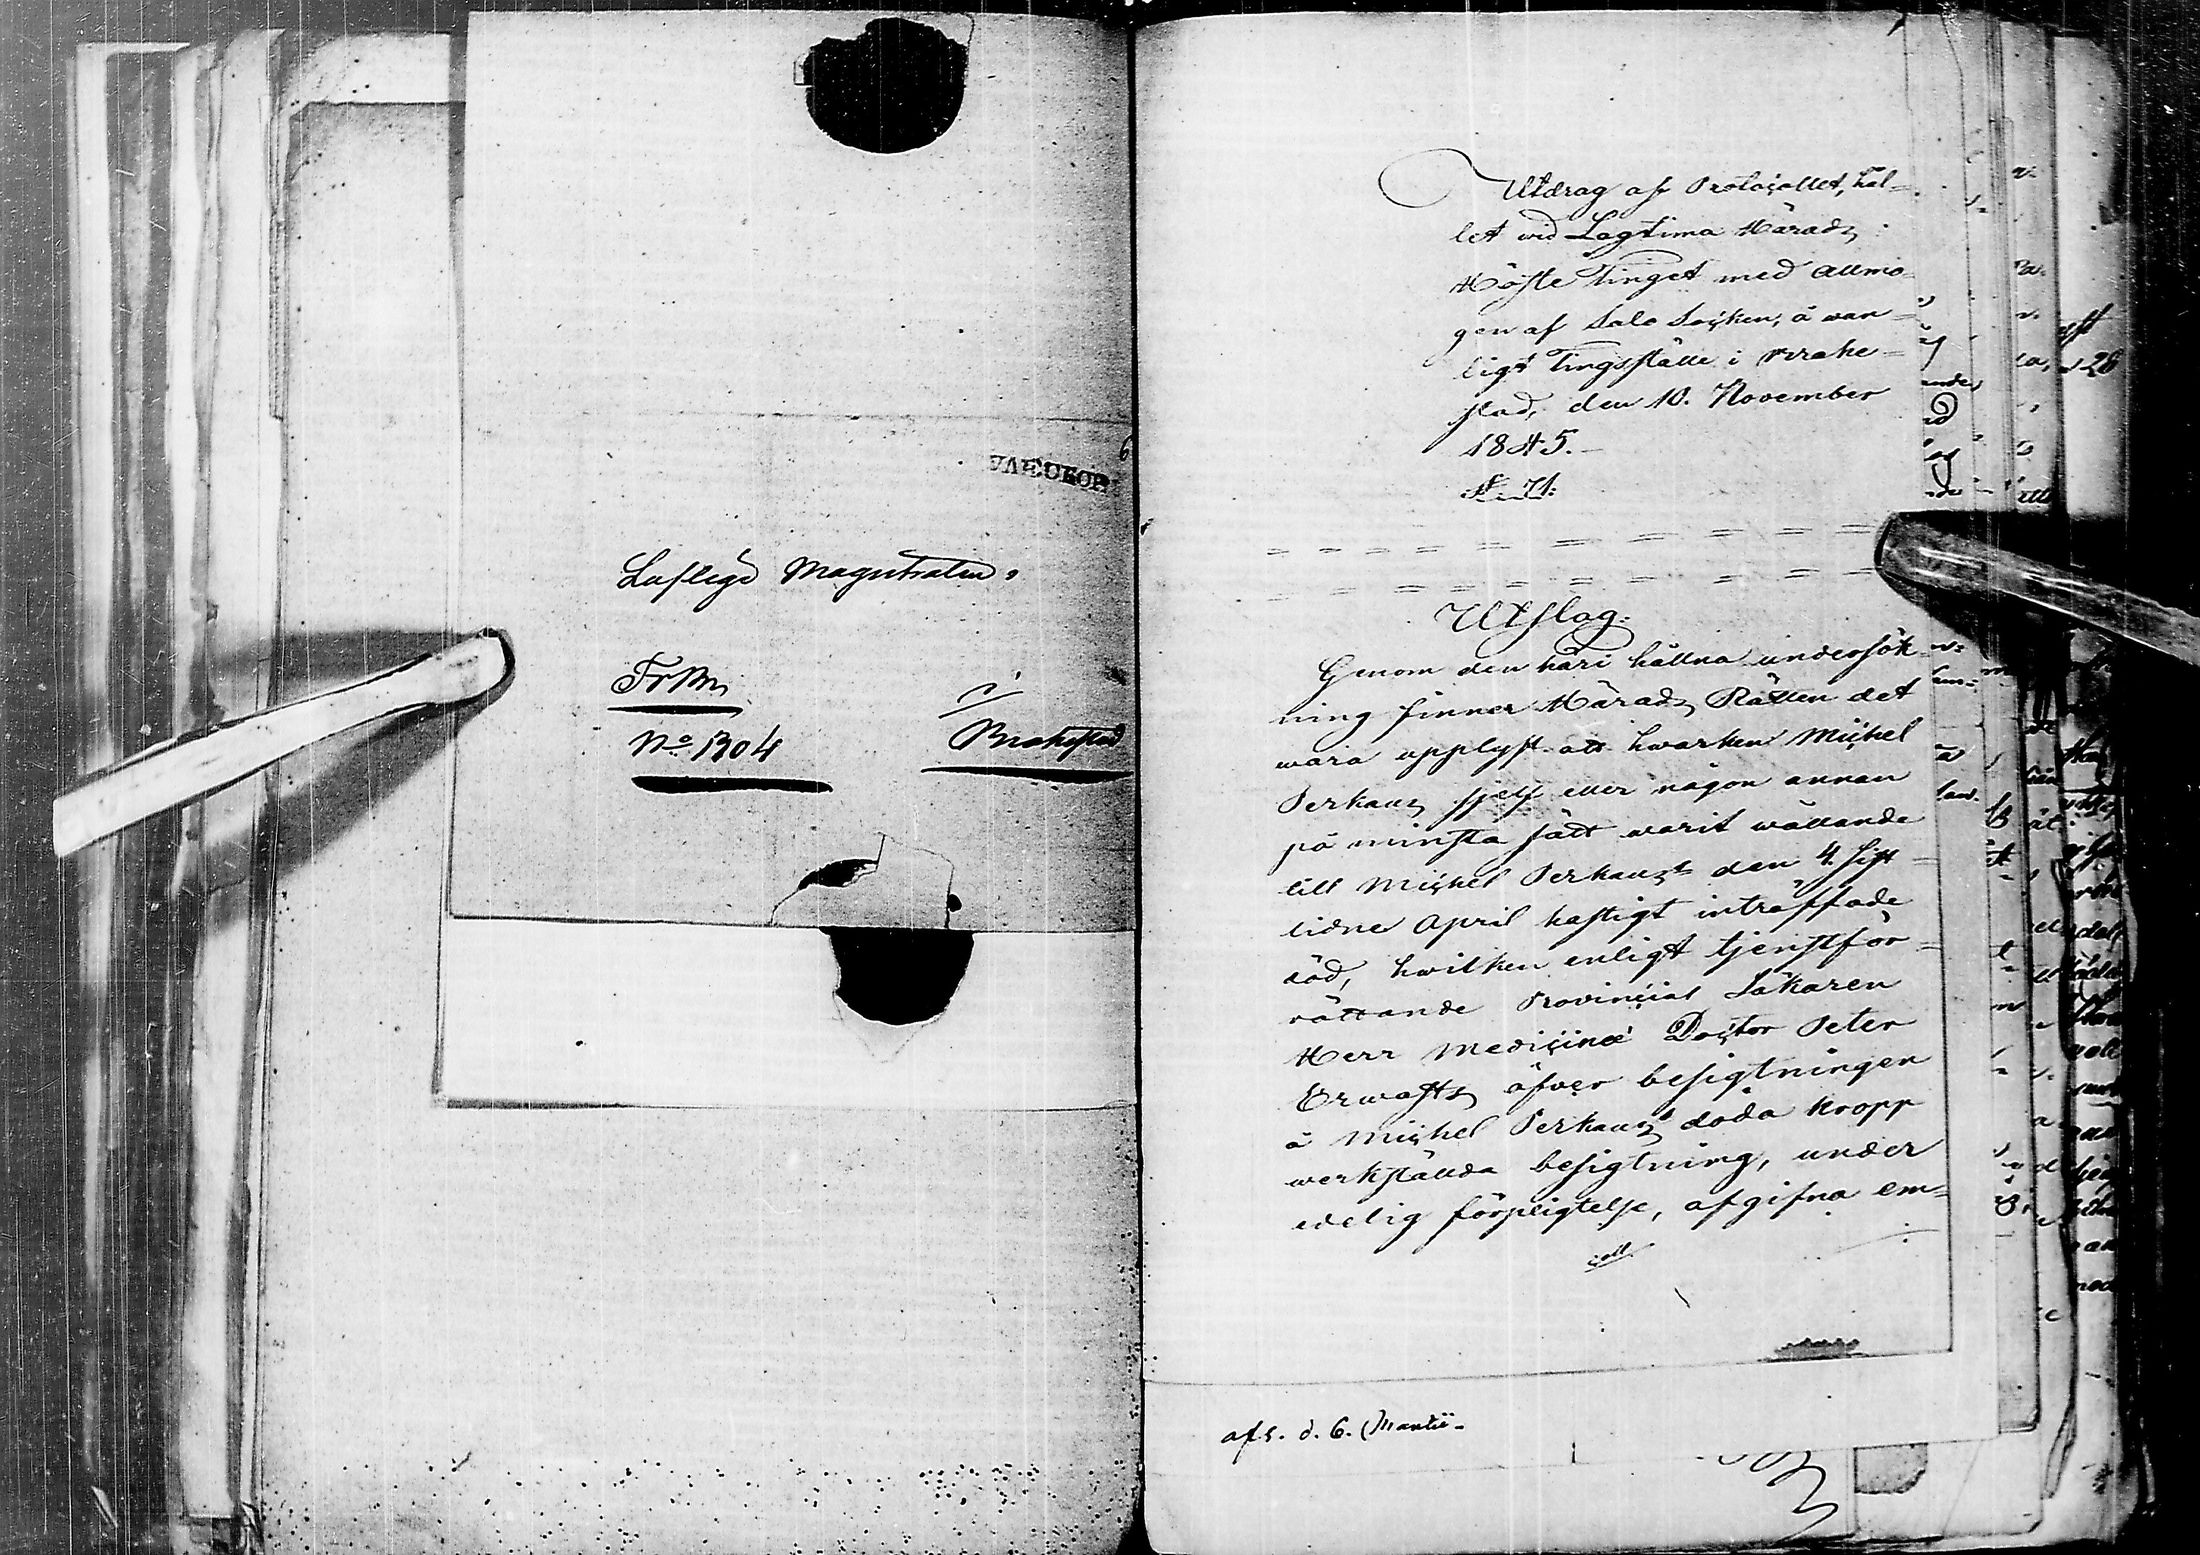 ULEÅBORG
Lofliga Magistraten,
Fr Bm
No 1304
i
Brahestad
Utdrag af Protocollet, hål-
let wid Lagtima Härads
Höste Tinget med Allmo-
gen af Salo Socken, å wan-
ligt Tingsställe i Brahe-
stad, den 10. November
1845.-
§ 71.
Utslag.
Genom den häri hållna undersök-
ning finner Härads Rätten det
wara upplyst att hwarken Michel
Perkans sjelf eller någon annan
på minsta sätt warit wållande
till Michel Perkans's den 4 sist-
lidne April hastigt inträffade
död, hwilken enligt tjenstför-
rättande Provincial Läkaren
Herr Medicinæ Doctor Peter
Erwasts öfver besigtningen
å Michel Perkans's döda kropp
werkställda besigtning, under
edelig förpligtelse, afgifna em-
afs. d. 6. Martii-